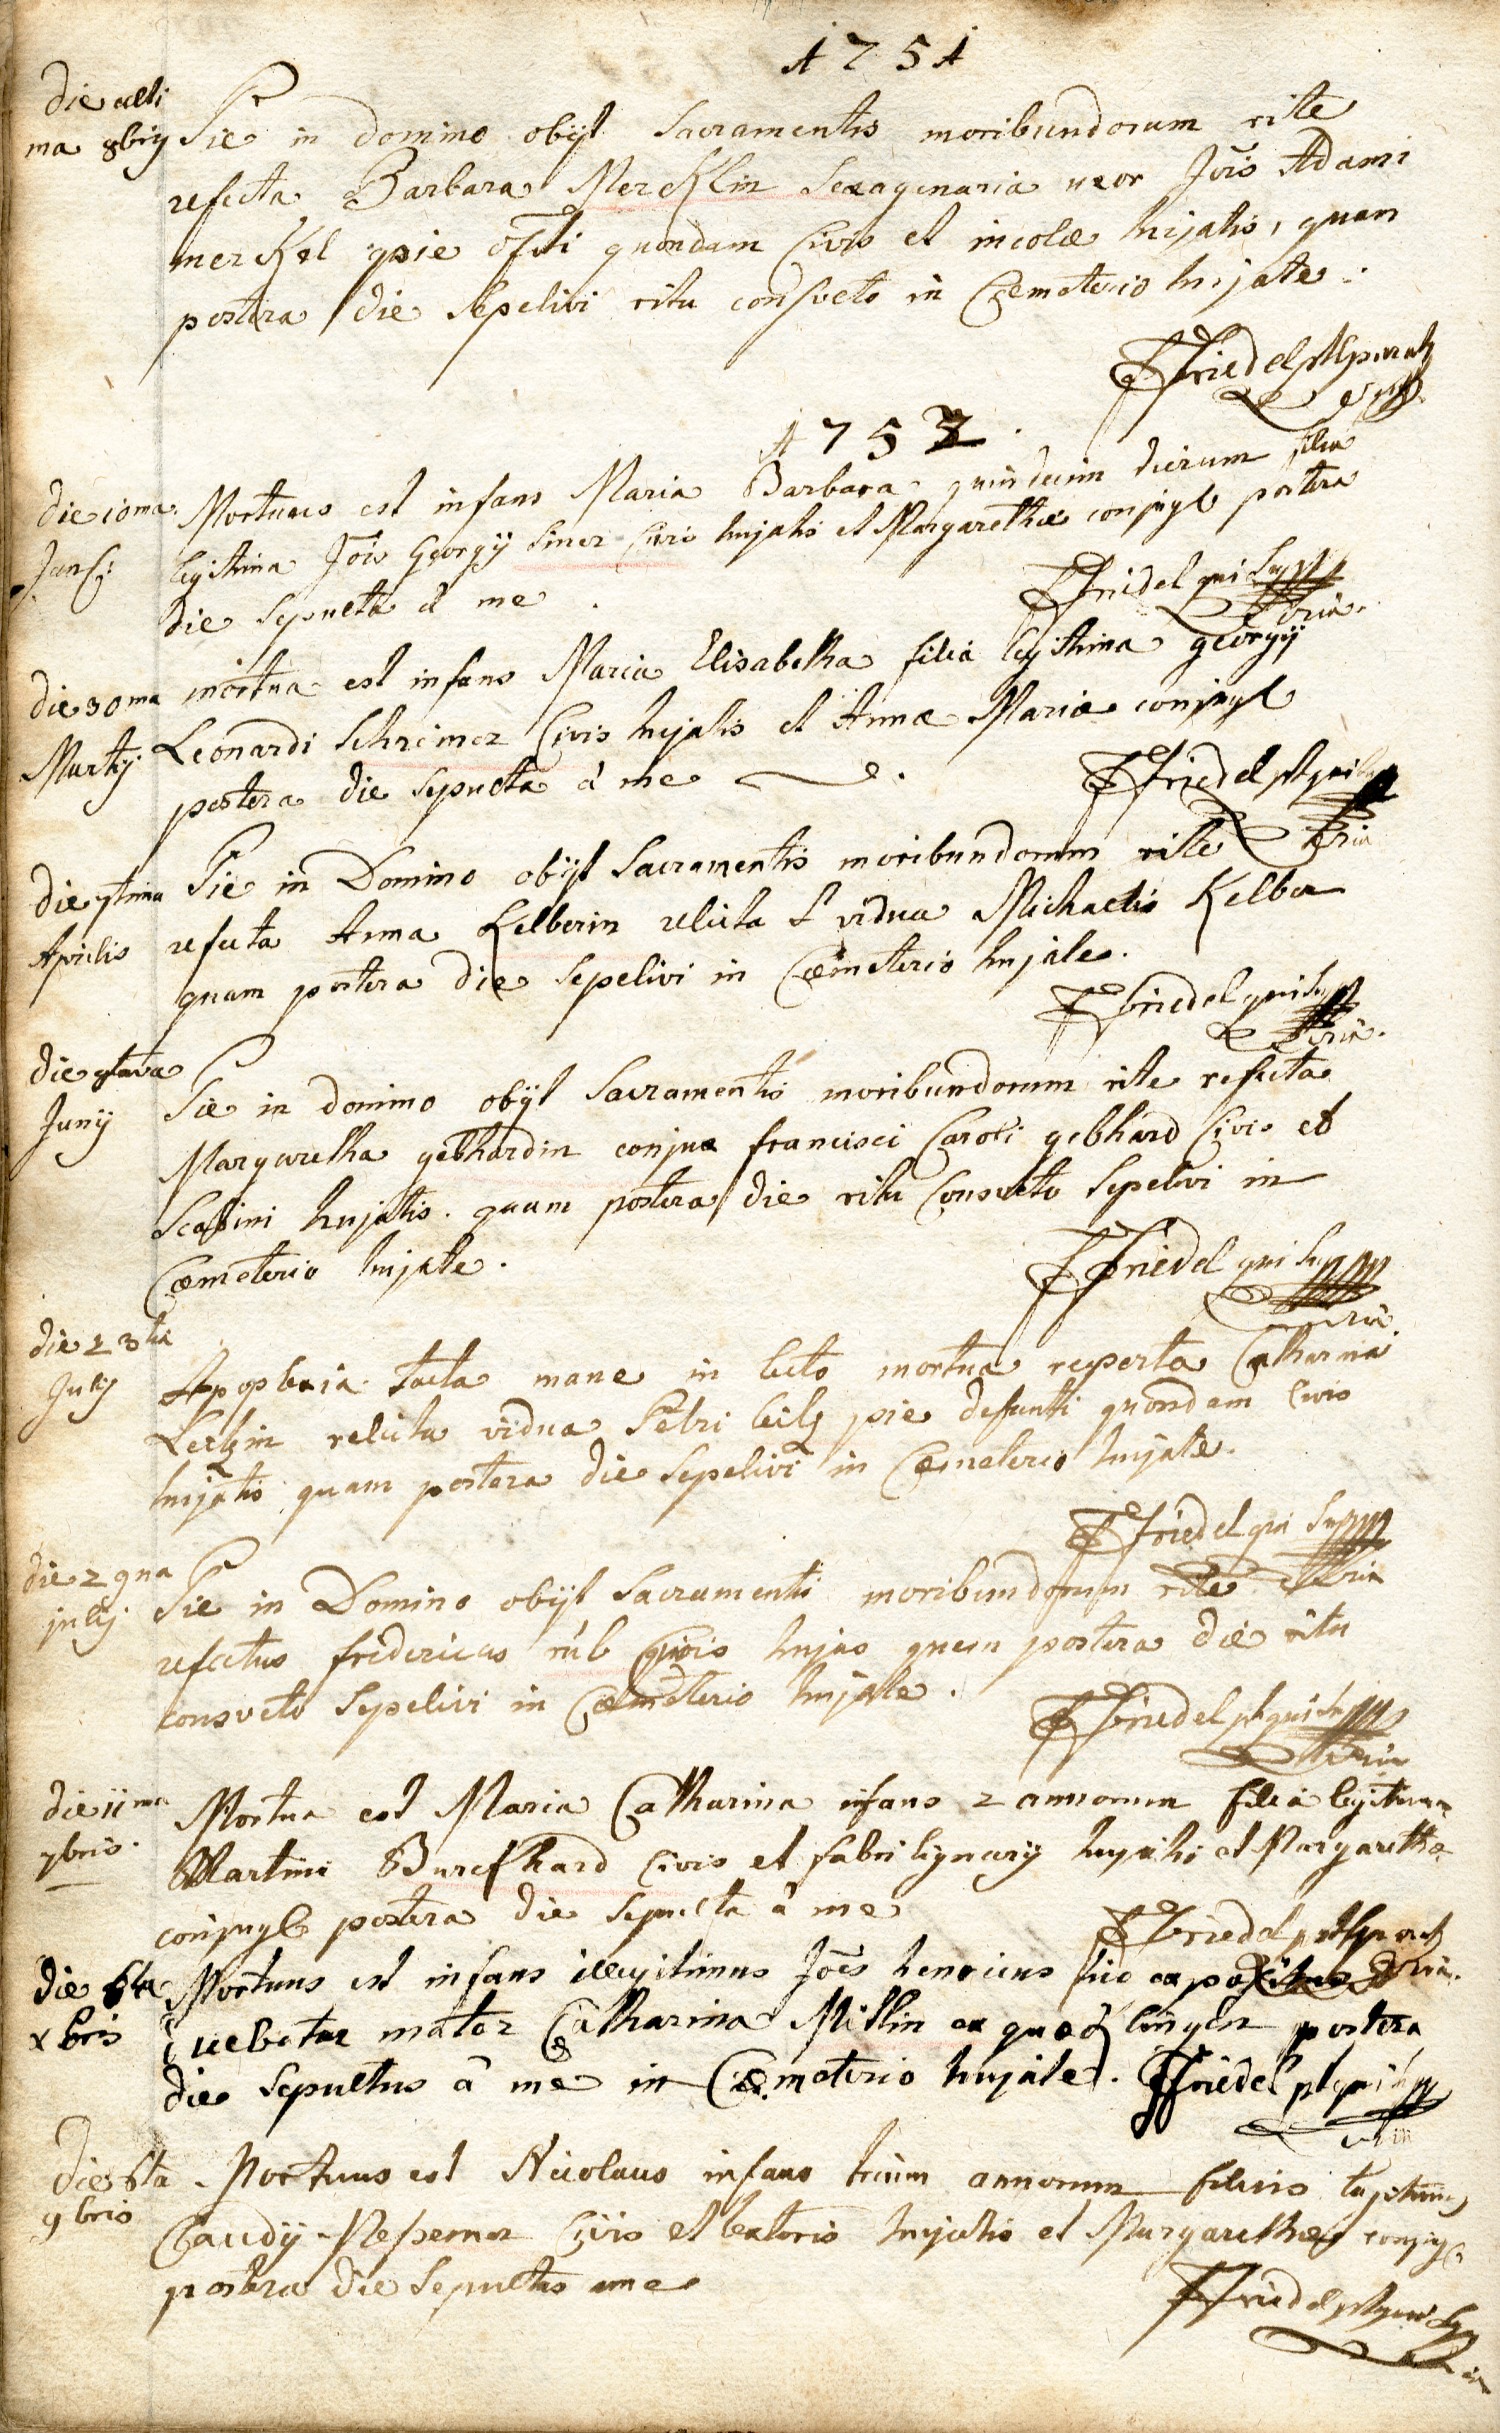 1751
die ulti
ma 8bris Pie in domino obijt Sacramentis moribundorum rite
refecta Barbara Mercklin Sexagenaria uxor Jois Adami
merckel pie defuncti quondam Civis et incolæ hujatis, quam
postera die Sepelivi ritu consveto in Cæmeterio hujate.
Friedel
1752.
die 10ma Mortuus est infans Maria Barbara quindecim dierum filia
legitima Jois Georgij Siner Civis hujatis et Margarethæ conjugum postera
die Sepulta à me.
Friedel qui Supra
die 30ma mortua est infans Maria Elisabetha filia legitima georgij
Martij Leonardi Schreiner Civis hujatis et Annæ Mariæ conjugum
postera die Sepulta à me.
Friedel
die 7tima Pie in Domino obijt Sacramentis moribundorum rite
Aprilis refecta Anna Kelberin relicta vidua Michaelis Kelber
quam postera die Sepelivi in Cæmeterio hujate.
Friedel qui Supra
die 8tava
Junij Pie in domino obijt Sacramentis moribundorum rite refecta
Margaretha gebhardin conjux francisci Caroli gebhard Civis et
Scabini hujatis. quam postera die ritu Consveto Sepelivi in
Cæmeterio hujate.
Friedel qui Supra
die 23tia
July Apoplexia tacta mane in lecto mortua reperta Catharina
relicta vidua Petri pie defuncti quondam Civis
hujatis quam postera die Sepelivi in Cæmeterio hujate.
Friedel qui Supra
die 29na
julij Pie in Domino obijt Sacramentis moribundorum rite
refectus fridericus rüb Civis hujas quem postera die ritu
consveto Sepelivi in Cæmeterio hujate.
Friedel
die 11ma Mortua est Maria Catharina infans 2 annorum filia legitima
7bris. Martini Burckhard Civis et fabri lignarij hujatis et Margarethæ
conjugum postera die Sepulta à me
Friedel
die 6ta Mortuus est infans illegitimus Joes henricus
xbris mater Catharina postera
die Sepultus à me in Cæmeterio hujate. Friedel
die 6ta Mortuus est Nicolaus infans trium annorum filius legitimus
9bris Claudij Civis et textoris hujatis et Margarethæ
postera die Sepultus a me
Friedel